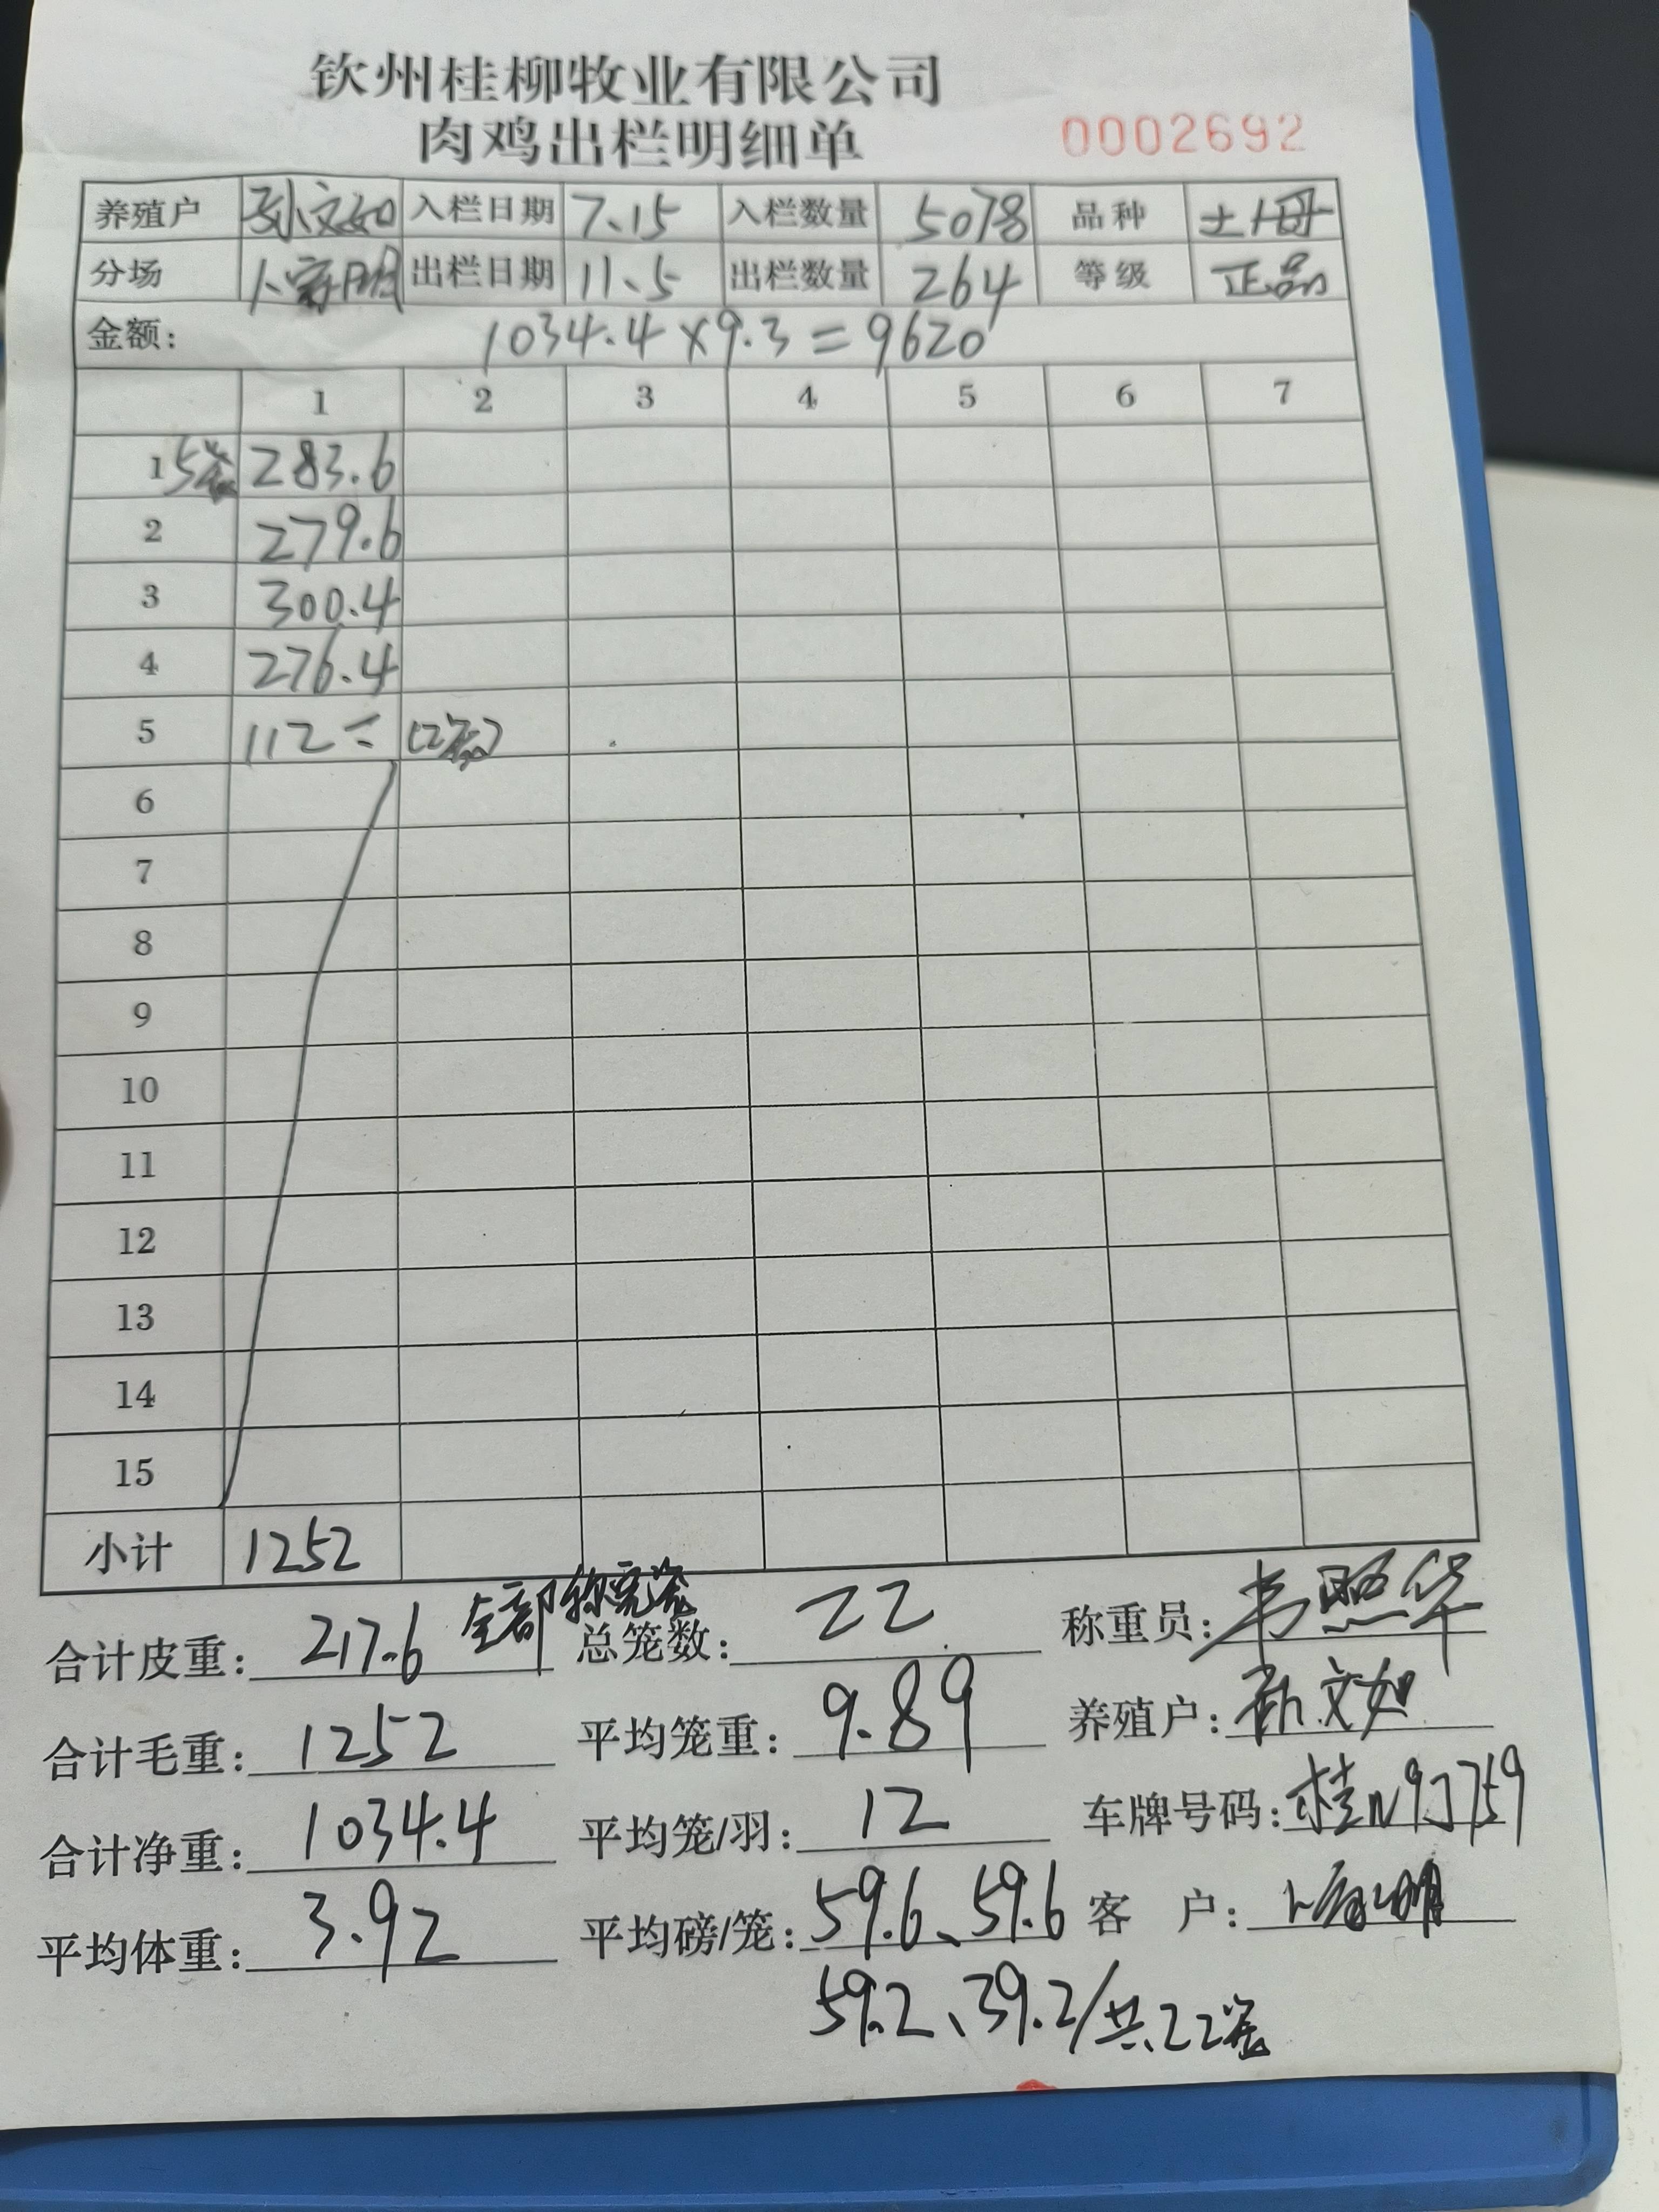 钦州桂柳牧业有限公司
肉鸡出栏明细单 0002692
养殖户 孙文如 入栏日期 7.15 入栏数量 5078 品种 土1母
分场 卜家明 出栏日期 11.5 出栏数量 264 等级 正品
金额: 1034.4×9.3=9620
1 2 3 4 5 6 7
1 5笼 283.6
2 279.6
3 300.4
4 276.4
5 112= (2笼)
6
7
8
9
10
11
12
13
14
15
小计 1252
合计皮重: 217.6 全部称完笼 总笼数: 22 称重员: 韦照华
合计毛重: 1252 平均笼重: 9.89 养殖户: 孙文如
合计净重: 1034.4 平均笼/羽: 12 车牌号码: 桂N9J759
平均体重: 3.92 平均磅/笼: 59.6、59.6 客 户:
59.2、39.2/共22笼